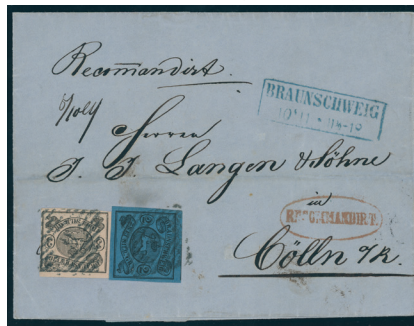 Recom̅andirt.
BRAUNSCHWEIG
Herren
J. J. Langen & Söhne
in
RECOMMANDIRT.
Cölln a/R.